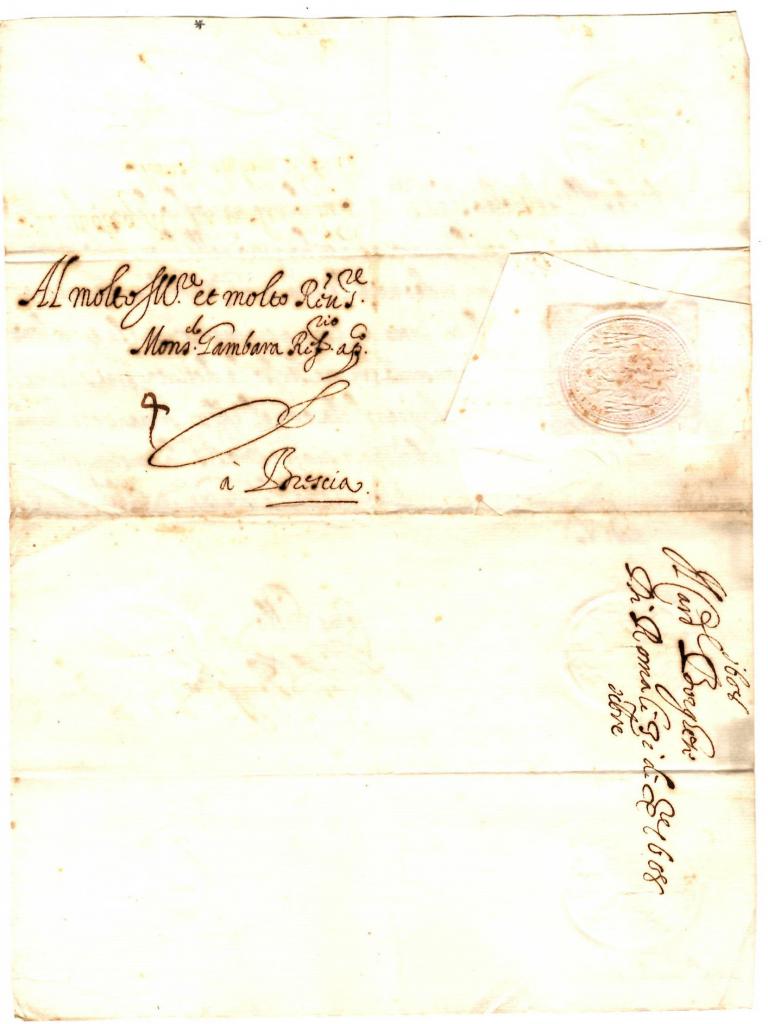 Al molto Ill.re et molto Reu. S.re
Mons.r Gambara Ref.rio ap.
à Brescia.
1608
Card Borghese
Di Roma li
di
1608